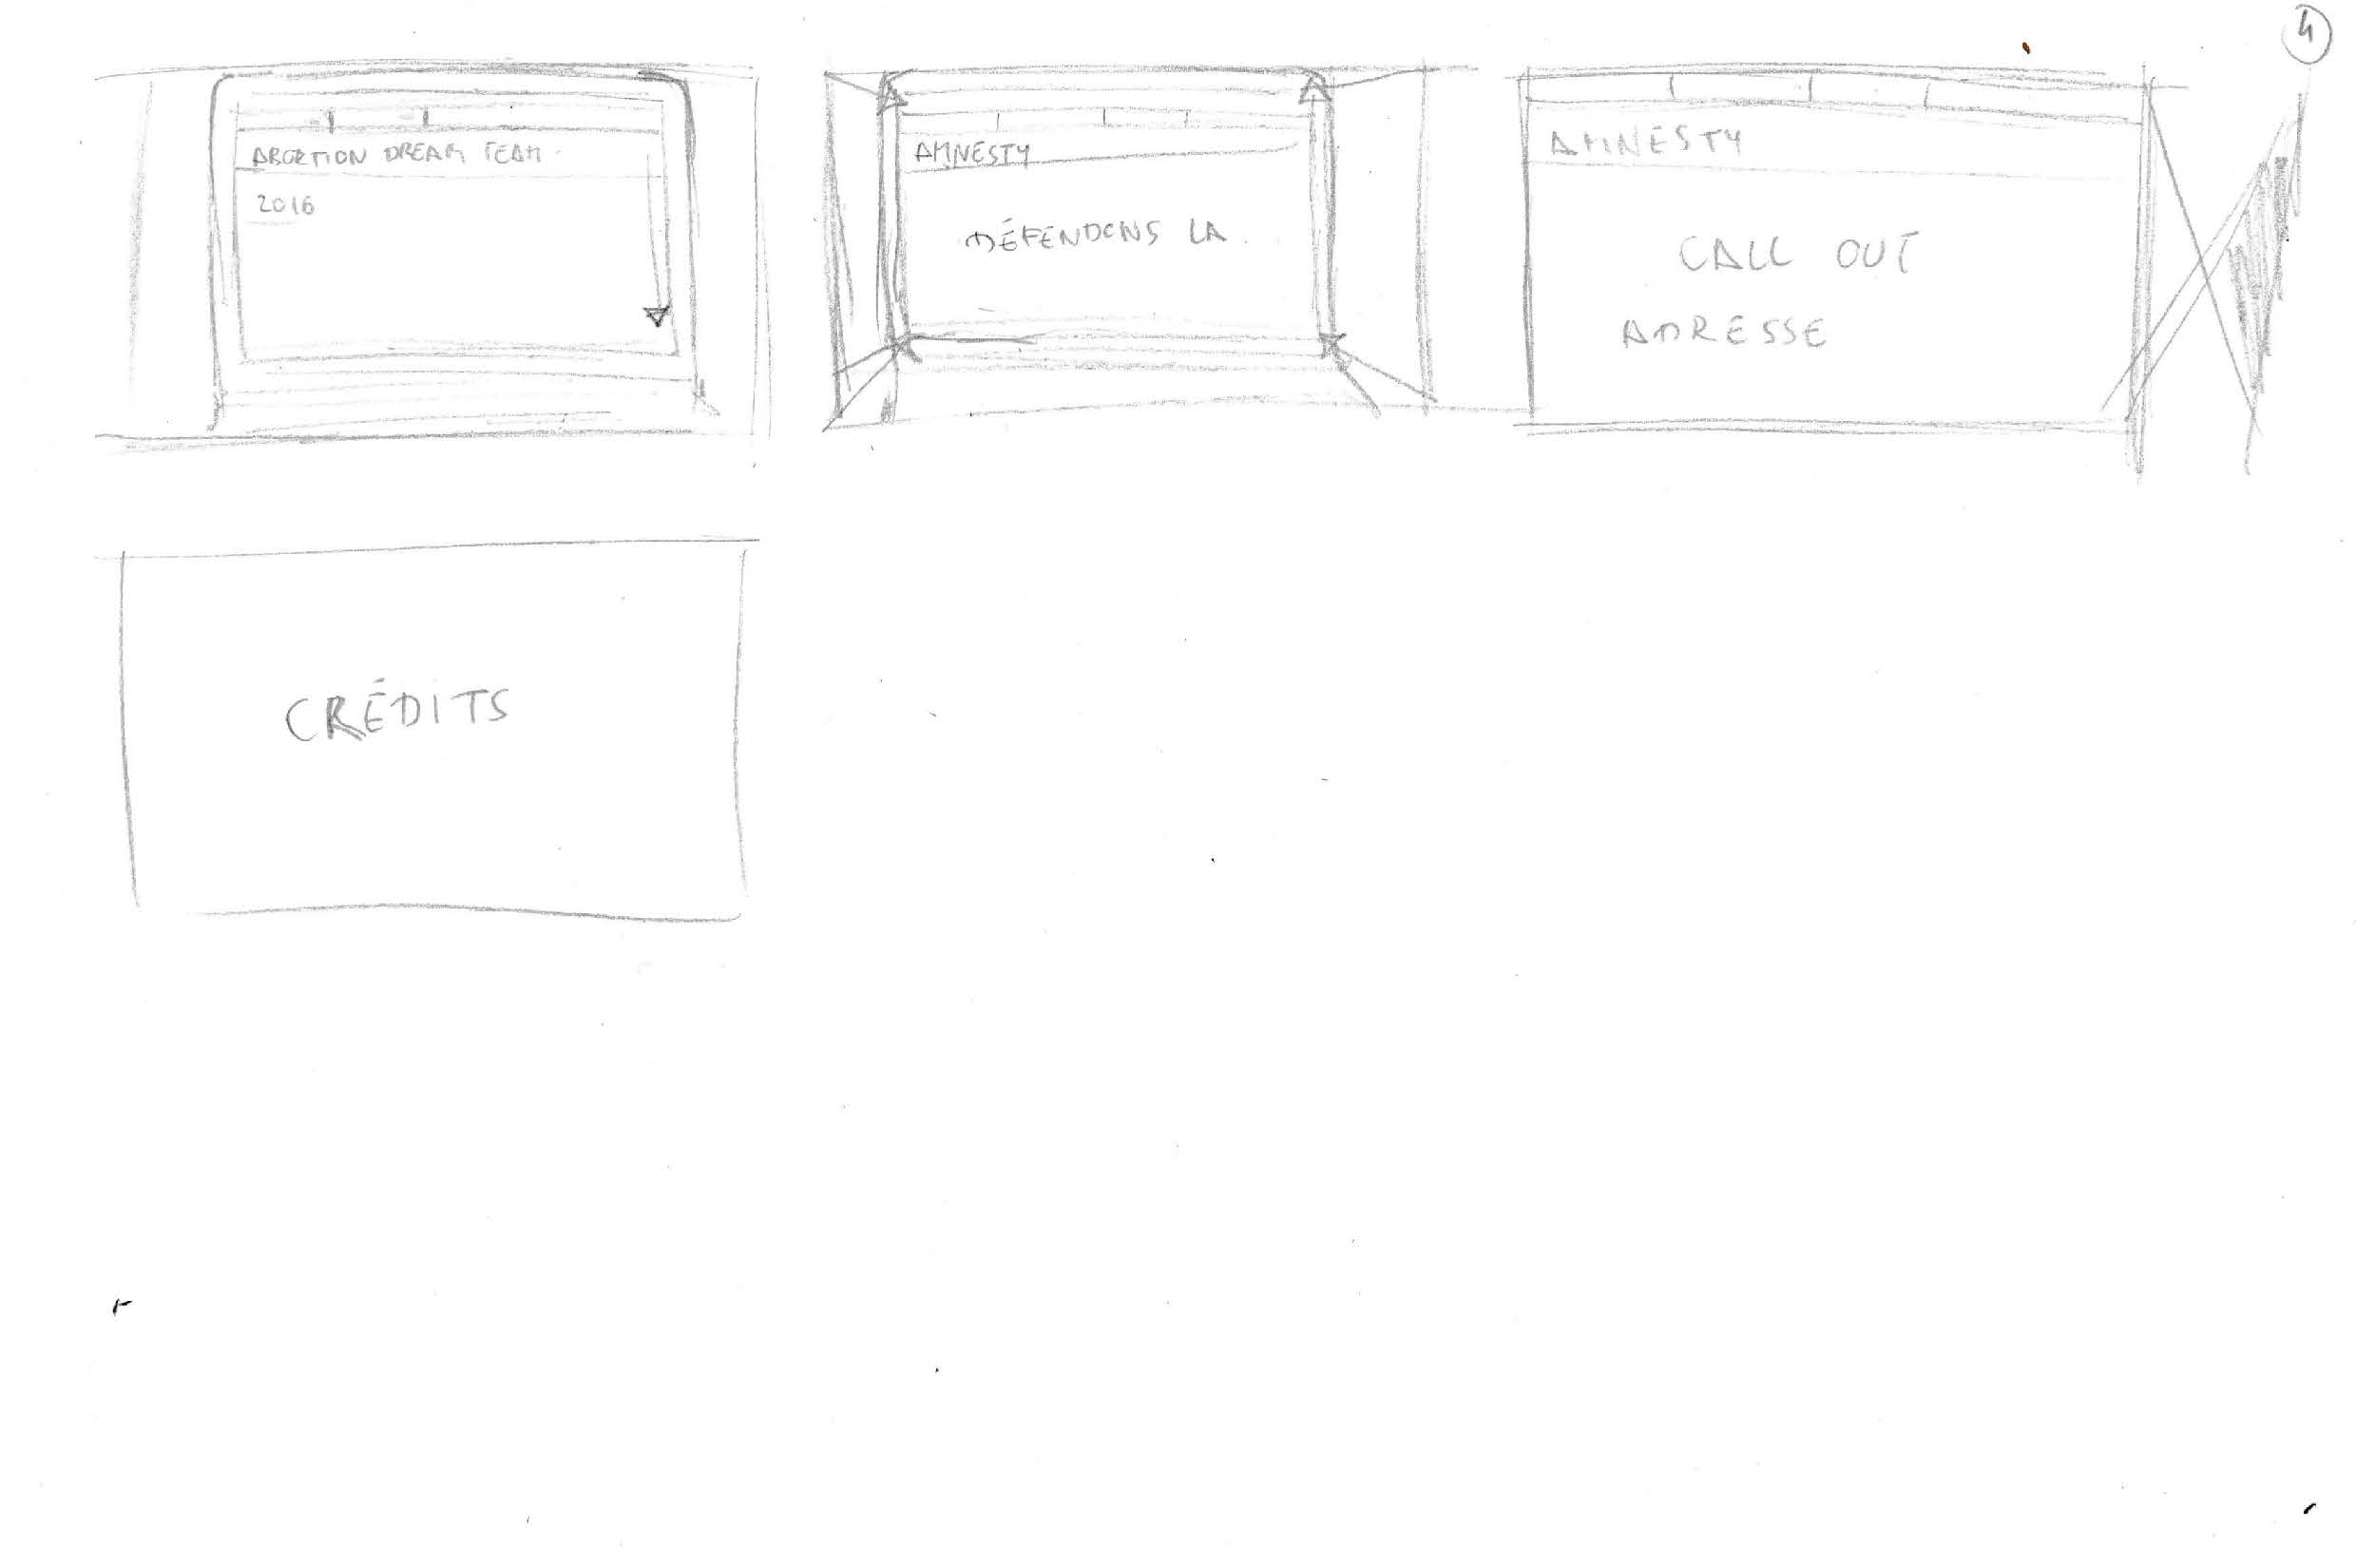 4
ABORTION DREAM TEAM
2016
AMNESTY
DÉFENDONS LA
AMNESTY
CALL OUT
ADRESSE
CRÉDITS